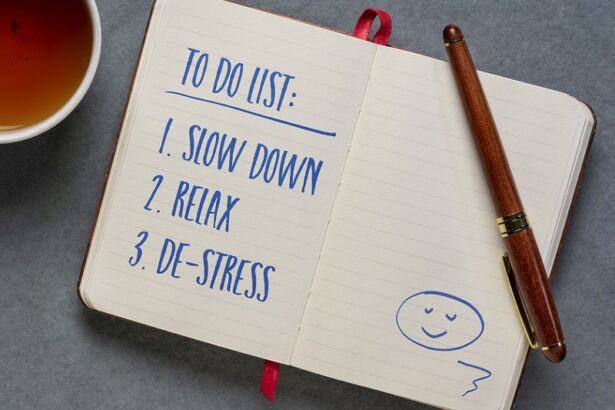 TO DO LIST:
1. SLOW DOWN
2. RELAX
3. DE-STRESS